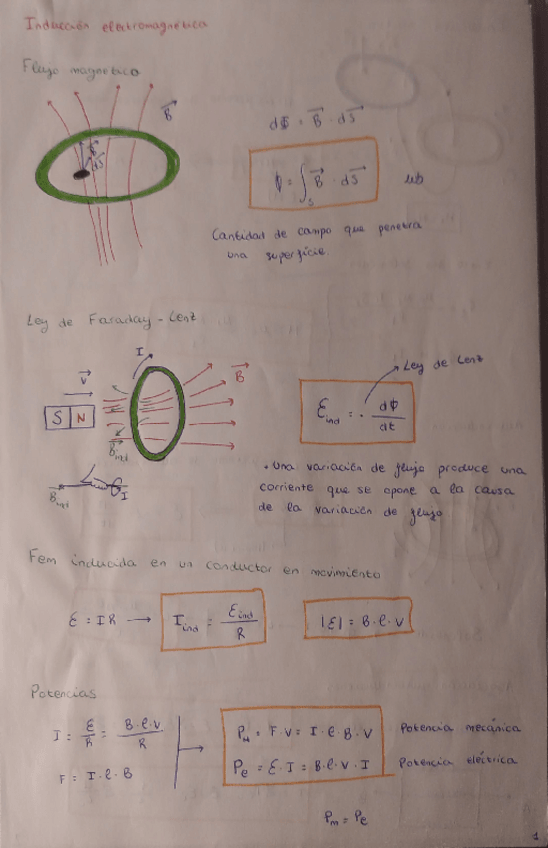 Inducción electromagnética
Flujo magnético
B
dS
dΦ = B · dS
Φ = ∫s B · dS wb
Cantidad de campo que penetra
una superficie.
Ley de Faraday - Lenz
I
V
B
S N
Bind
Bind I
Ley de Lenz
Eind = - dΦ/dt
· Una variación de flujo produce una
corriente que se opone a la causa
de la variación de flujo
Fem inducida en un conductor en movimiento
E = IR → Iind = Eind/R |E| = B·l·V
Potencias
I = E/R = B·l·V/R
F = I·l·B
PM = F·V = I·l·B·V Potencia mecánica
Pe = E·I = B·l·V·I Potencia eléctrica
Pm = Pe
1